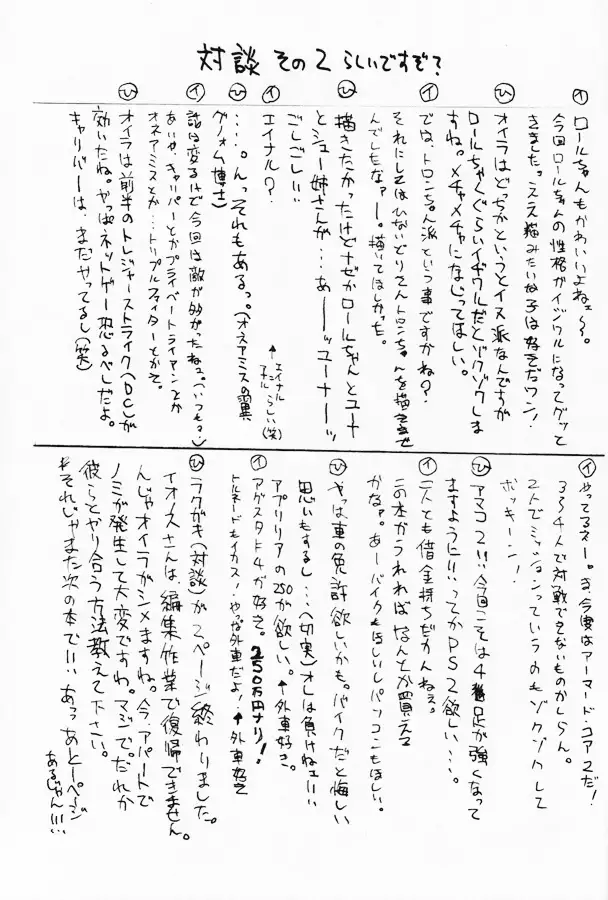 対談 その2 らしいですぞ?
イ ロールちゃんもかわいいよねェ〜。
今回ロールちゃんの性格がイジワルになってグッと
きました。ええ描みたいな子は好きだワン!
ひ オイラはどっちかというとイヌ派なんですが
ロールちゃんぐらいイヂワルだとゾクゾクしま
すね。メチャメチャになじってほしい。
イ では、トロンちゃん派という事ですかね?
それにしてはひないどりさんトロンちゃんを描きませ
んでしたなァー。描いてほしかった。
ひ 描きたかったけどナゼかロールちゃんとユーナ
とシュー姉さんが…あーーッユーナーーッ
ごしごしい
イ エイナル?
↑エイナル
らしい(笑)
ひ ・・・・。んっそれもあるっ。(オネアミスの翼
グノォム博士)
イ 話は変るけど今回は敵が多かったねェ。(いつも?)
あいや、キャリバーとかプライベートライアンとか
オネアミスとか…トリプルファイターとかで。
ひ オイラは前半のトレジャーストライク(DC)が
効いたね。やっぱネットゲー恐るべしだよ。
キャリバーは、まだやってるし(笑)
イ やってるネー。ま、今度はアーマード・コア2だ!
3る4人で対戦できないものかしらん。
2人でミッションっていうのもゾクゾクして
ボッキーン!
ひ アマコ2!!今回こそは4脚足が強くなって
ますように!!ってかPS2欲しい…。
イ 二人とも借金持ちだかんねぇ。
この本がうれればなんとか買える
かなァ。あーバイクもほしいしパソコンもほしい。
ひ やっぱ車の免許欲しいかも。バイクだと悔しい
思いもするし…(切実)オレは負けねェ!!!
アプリリアの250が欲しい。↑外車好き。
イ アグスタF4が好き。250万円ナリ!
トルネードもイカス!やな外車だよ!↑外車好き
ひ ラクガキ(対談)が2ページ終わりました。
イオノスさんは編集作業で復帰できません。
んじゃオイラがシメますね。今、アパートで
ノミが発生して大変ですね。マジで。だれか
彼らとやり合う方法教えて下さい。
それじゃまた次の本で!!!あっあと一ページ
あるじゃん!!!